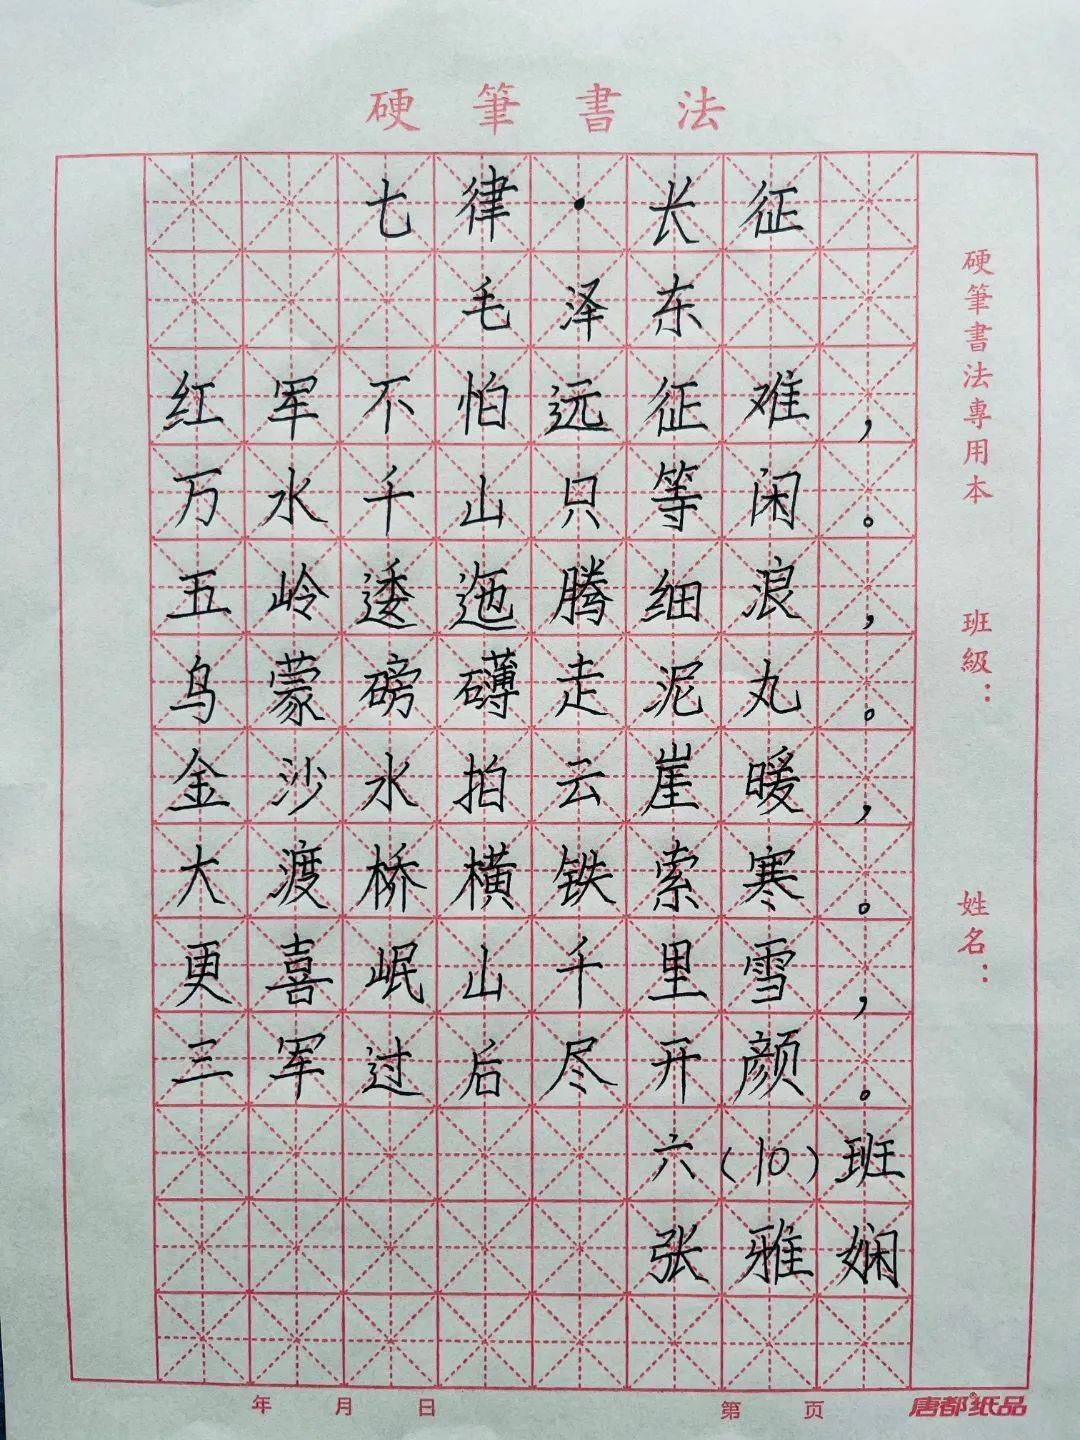 硬筆書法
七律·长征
毛泽东
红军不怕远征难，
万水千山只等闲。
五岭逶迤腾细浪，
乌蒙磅礴走泥丸。
金沙水拍云崖暖，
大渡桥横铁索寒。
更喜岷山千里雪，
三军过后尽开颜。
六(10)班
张雅娴
硬筆書法專用本
班級：
姓名：
年 月 日
第 页
唐都纸品